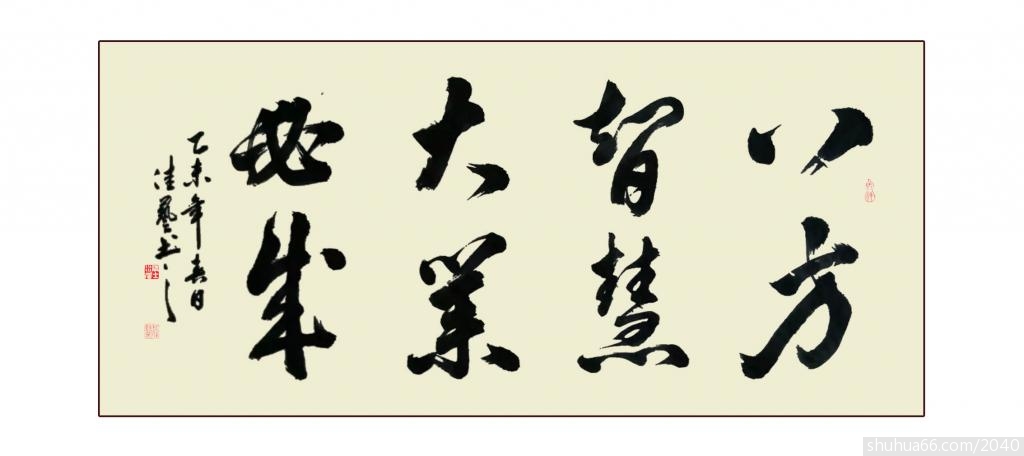 八方
智慧
大業
必成
乙未年春日
佳藝書之
shuhua66.com/2040